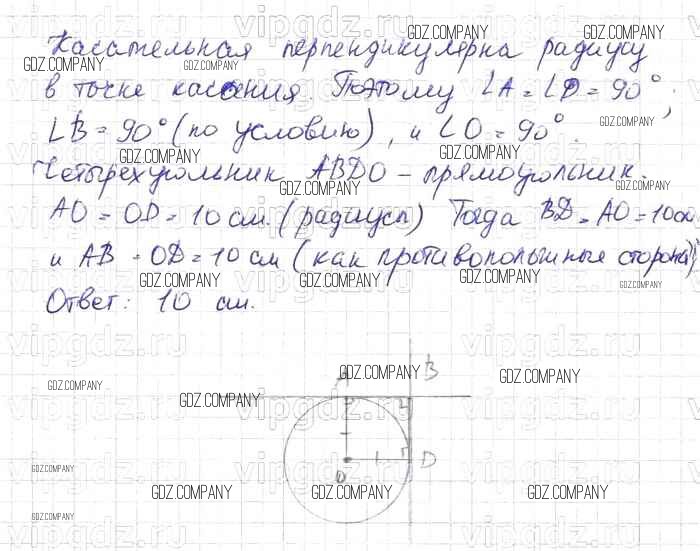 Касательная перпендикулярна радиусу
в точке касания. Поэтому ∠A = ∠D = 90°;
∠B = 90° (по условию), и ∠O = 90°.
Четырехугольник ABDO – прямоугольник.
AO = OD = 10 см. (радиусы) Тогда BD = AO = 10 см
и AB = OD = 10 см (как противоположные стороны)
Ответ: 10 см.
A B
O D
GDZ.COMPANY
vipgdz.ru